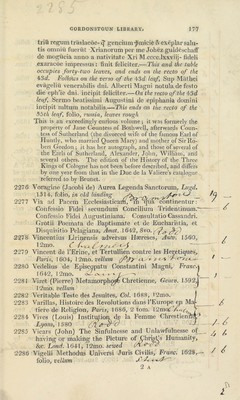 GORDONSTOUN LIBRARY. 177
triũ regum trãslacõe- gencium pũnicie & exẽplar saluatis omniũ fuerũt Xrianorum per me Johẽz guldẽschaff
de mogũcia anno a natiuitate Xri M cccc.lxxvii- fideli
exarscõe impressus: finit feliciter.—This and the table
occupies forty-two leaves, and ends on the recto of the
45d. Follows on the verso of the 45d leaf, Sup Mathei
evãgeliũ venerabilis dni. Alberti Magni notula de festo
die eph'ie dni. incipit feliciter.—On the recto of the 45d
leaf, Sermo beatissimi Augustini de epiphania domini
incipit saltum notabilis—This ends on the recto of the
Stack leaf, folio, russia, leaves rough
This is an exceedingly curious volume; it was formerly the
property of Jane Countess of Bothwell, afterwards Countess of Sutherland (the divorced wife of the famous Earl of
Huntly, who married Queen Mary) and mother of Sir Robert Gordon; it has her autograph, and those of several of
the Earls of Sutherland, Alexander, John, William, and
several others. The edition of the History of the Three
Kings of Cologne has not been before described, and differs
by one year from that in the Duc de la Valiere's catalogue
referred to as Brunet.
2276 Voragine (Jacobi de) Aurea Legenda Sanctorum, Legd.
1514, folio, in old binding
2277 Via ad Pacem Ecclesiasticam, in qua continentur
Confessio Fidei secundum Concilium Tridentinum
Confessio Fidei Augustiniana. Consultatio Cassandri.
Grotii Poemata de Baptismate et de Eucharistia, et
Disquisitio Pelagiana, Amst. 1642, 8vo.
2278 Vincentius Lirinensis adversus Hæreses, Amst. 1560,
12mo.
2279 Vincent de l'Erite, et Tertullien contre les Heretiques,
Paris, 1604, 12mo. vellum
2280 Vedelius de Episcopatu Constantini Magni, Franc.
1642, 12mo.
2281 Viret (Pierre) Metamorphose Chretienne, Genev. 1592,
12mo. vellum
2282 Veritable Teste des Jesuites, Col. 1688, 12mo.
2283 Varillas, Histoire des Revolutions dans l'Europe en Matière de Religion, Paris, 1686, 2 tom. 12mo.
2284 Vives (Louis) Institution de la Femme Chrestienne,
Lyons, 1580
2285 Vicars (John) The Sinfulness and Unlawfulness of
having or making the Picture of Christ's Humanity,
&c. Lond. 1641, 12mo. seized
2286 Vigelii Methodus Universi Juris Civilis, Franc. 1628,
folio, vellum
2 A